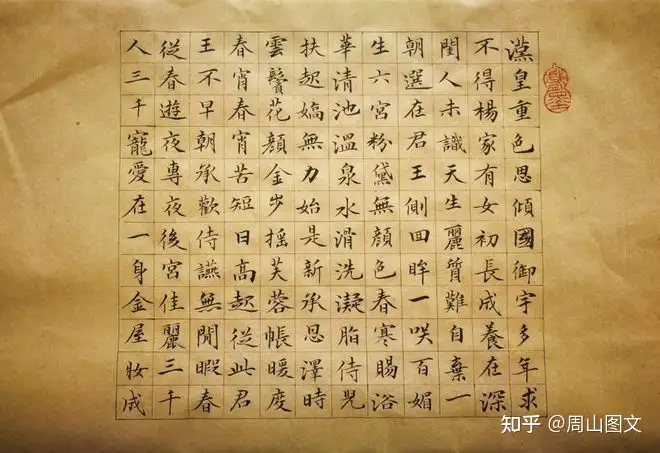 漢皇重色思傾國御宇多年求
不得楊家有女初長成養在深
閨人未識天生麗質難自棄一
朝選在君王側回眸一咲百媚
生六宮粉黛無顏色春寒賜浴
華清池溫泉水滑洗凝脂侍兒
扶起嬌無力始是新承恩澤時
雲鬢花顏金步搖芙蓉帳暖度
春宵春宵苦短日高起從此君
王不早朝承歡侍讌無閒暇春
從春遊夜專夜後宮佳麗三千
人三千寵愛在一身金屋妝成
知乎 @周山图文